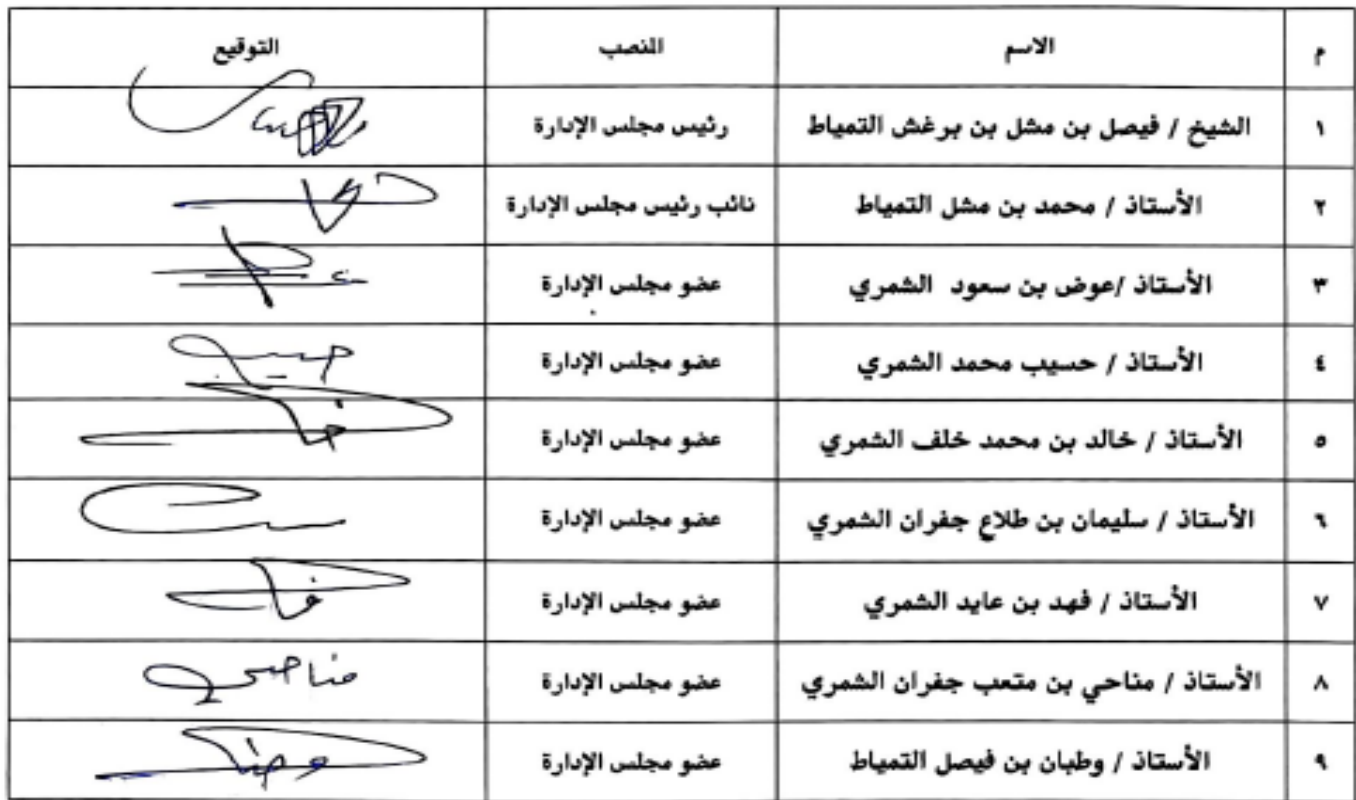 م الاسم المنصب التوقيع
١ الشيخ / فيصل بن مشل بن برغش التمياط رئيس مجلس الإدارة
٢ الأستاذ / محمد بن مشل التمياط نائب رئيس مجلس الإدارة
٣ الأستاذ /عوض بن سعود الشمري عضو مجلس الإدارة
٤ الأستاذ / حسيب محمد الشمري عضو مجلس الإدارة
٥ الأستاذ / خالد بن محمد خلف الشمري عضو مجلس الإدارة
٦ الأستاذ / سليمان بن طلاع جفران الشمري عضو مجلس الإدارة
٧ الأستاذ / فهد بن عايد الشمري عضو مجلس الإدارة
٨ الأستاذ / مناحي بن متعب جفران الشمري عضو مجلس الإدارة مناحي
٩ الأستاذ / وطبان بن فيصل التمياط عضو مجلس الإدارة